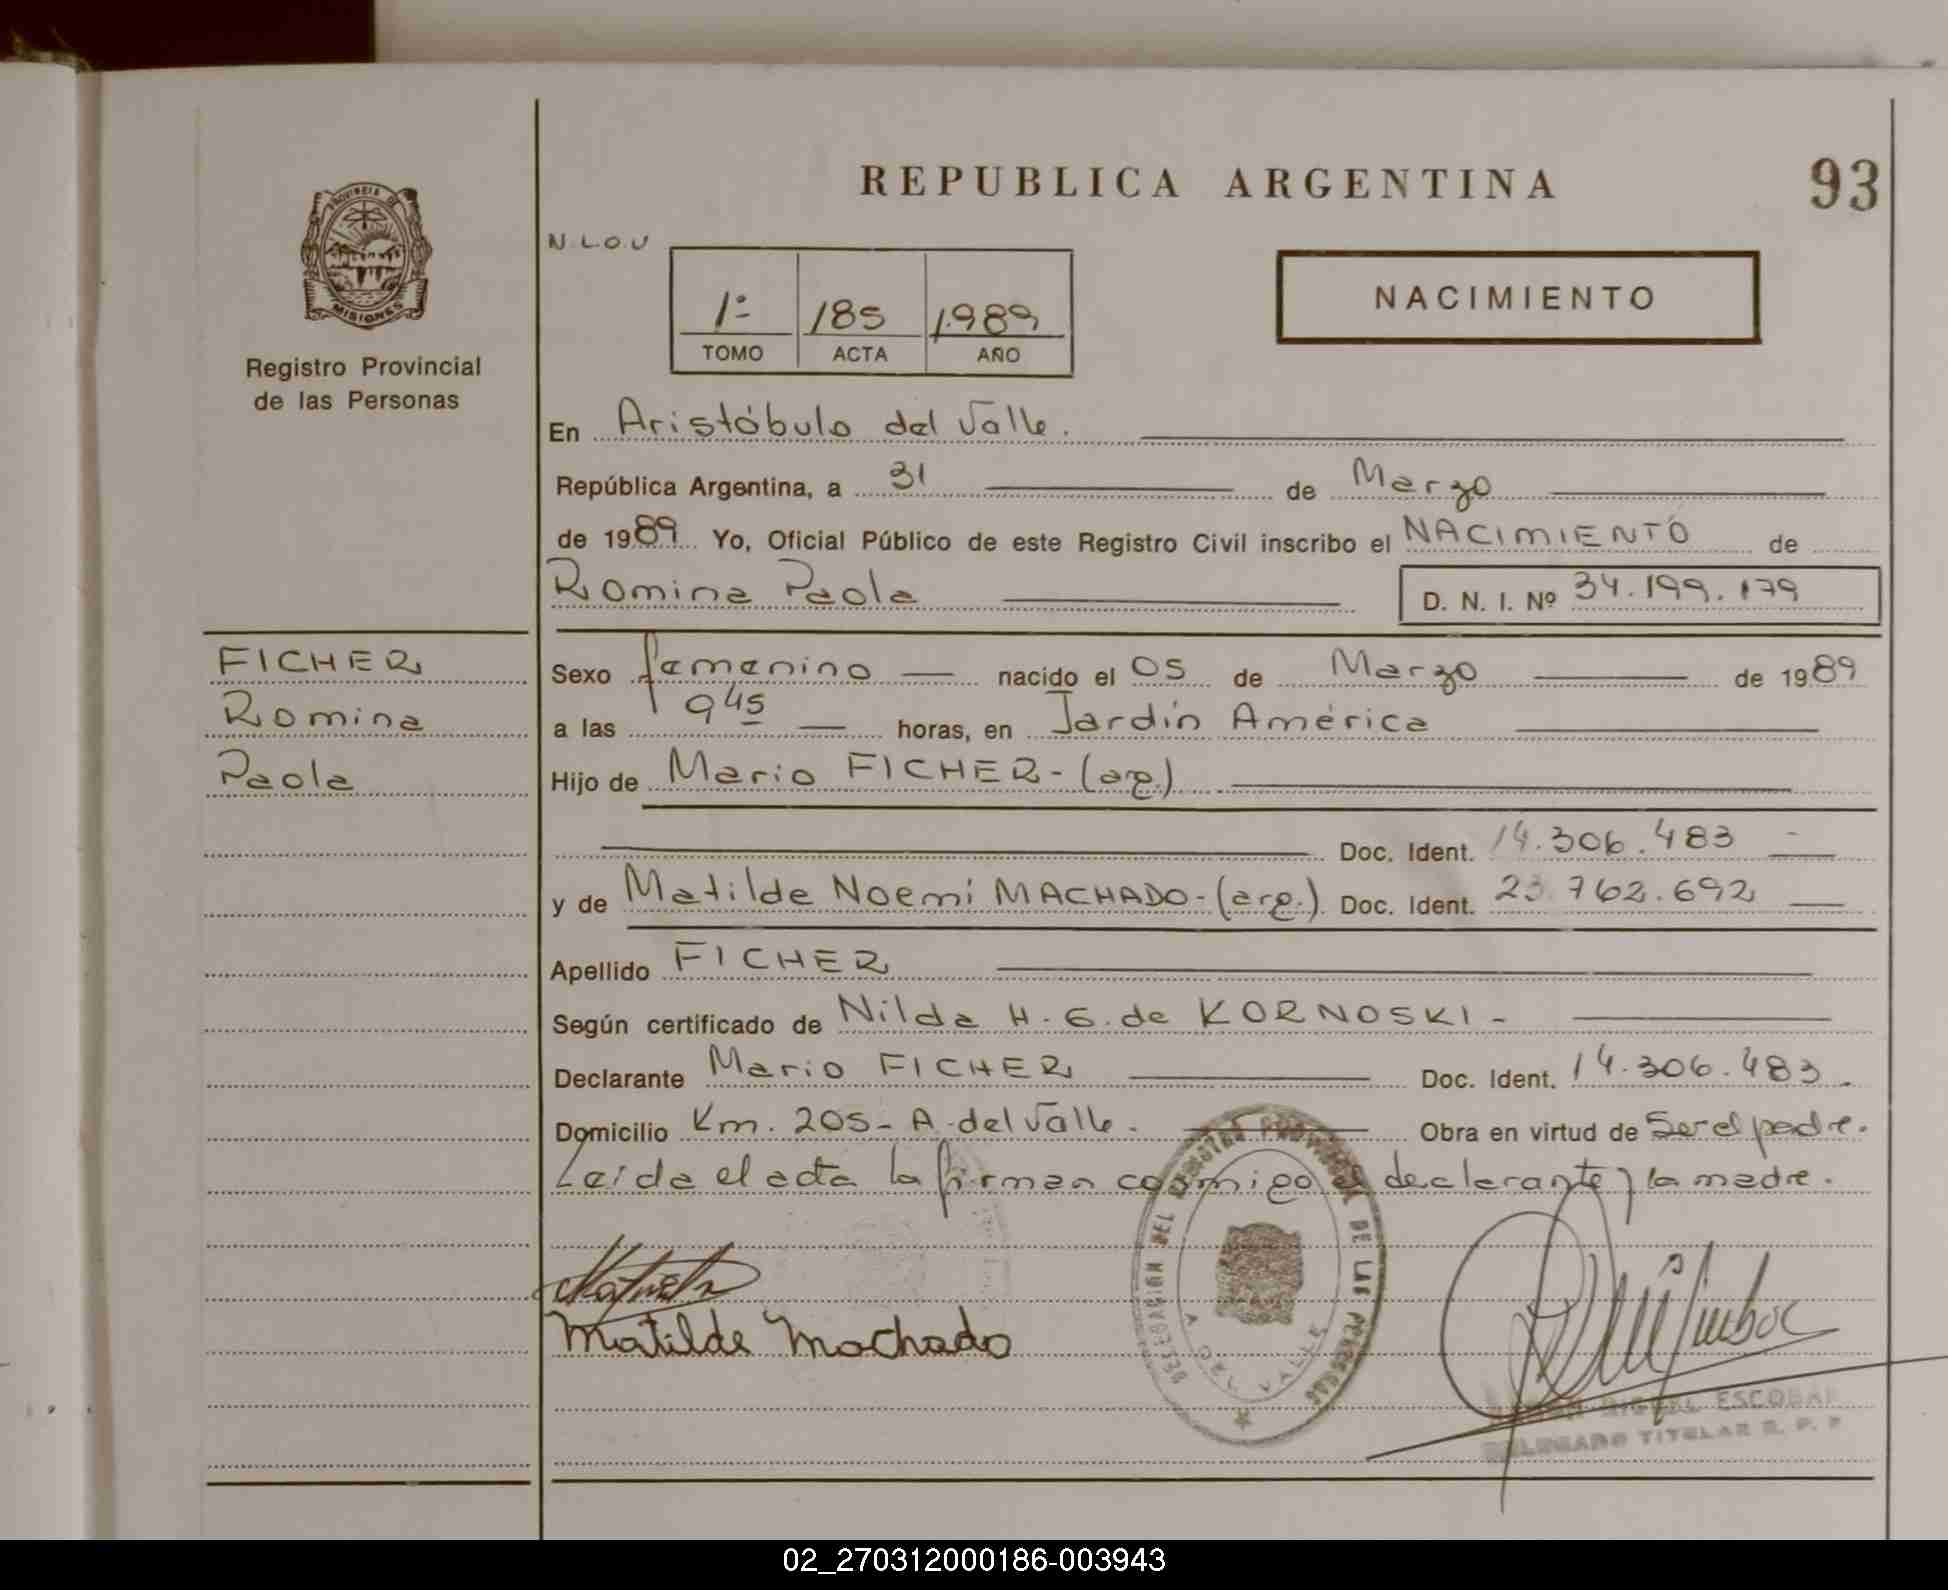 REPUBLICA ARGENTINA
93
PROVINCIA DE
MISIONES
Registro Provincial
de las Personas
N.L.O.U
1º 185 1.989
TOMO ACTA AÑO
NACIMIENTO
En Aristóbulo del Valle.
República Argentina, a 31 de Marzo
de 1989 Yo, Oficial Público de este Registro Civil inscribo el NACIMIENTO de
Romina Paola D. N. I. Nº 34.199.179
FICHER
Romina
Paola
Sexo femenino nacido el 05 de Marzo de 1989
a las 9 45 horas, en Jardín América
Hijo de Mario FICHER - (arg.)
Doc. Ident. 14.306.483
y de Matilde Noemi MACHADO - (arg.) Doc. Ident. 23.762.692
Apellido FICHER
Según certificado de Nilda H. G. de KORNOSKI -
Declarante Mario FICHER Doc. Ident. 14.306.483.
Domicilio Km. 205 - A. del Valle. Obra en virtud de Ser el padre.
Leida el acta la firman conmigo el declarante y la madre.
Matilde Machado
DELEGACION DEL REGISTRO PROVINCIAL DE LAS PERSONAS
A. DEL VALLE
MIGUEL ESCOBAR
DELEGADO TITULAR R. P. P
02_270312000186-003943